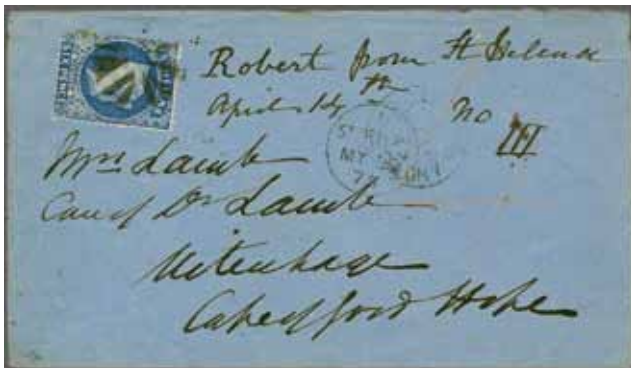 Robert from St Helena
April 14th
No III
Mrs Lamb
Care of Dr Lamb
Uitenhage
Cape of Good Hope